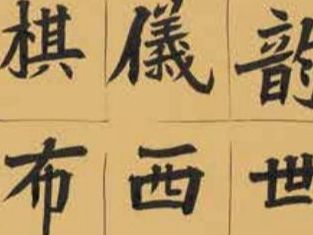 棋儀韵
布西世